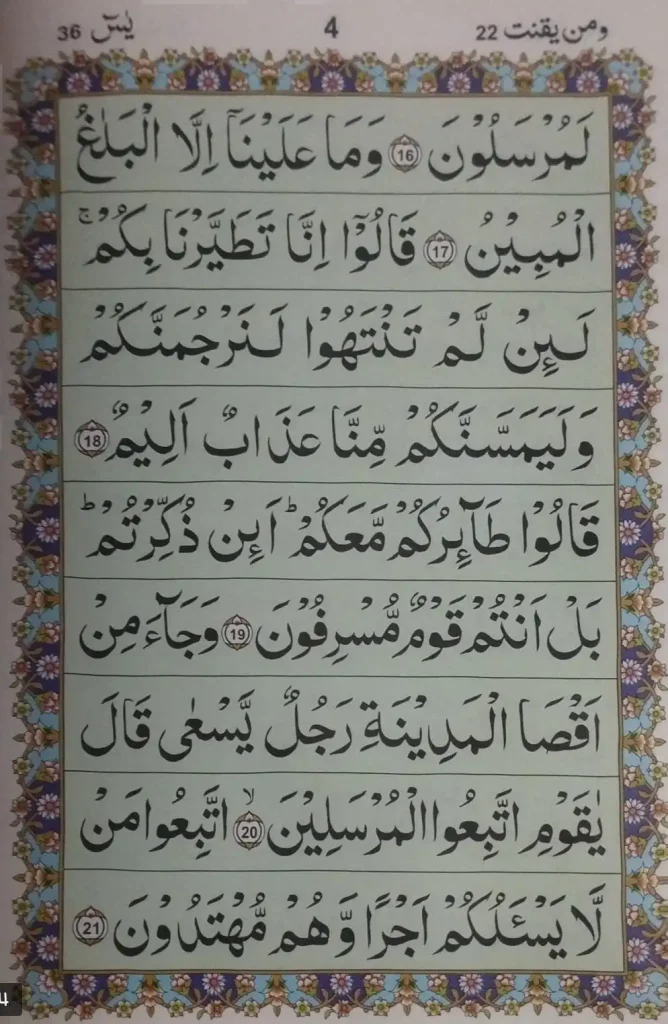 ومن یقنت 22 4 یٰسٓ 36
لَمُرْسَلُوْنَ 16 وَمَا عَلَيْنَاۤ اِلَّا الْبَلٰغُ
الْمُبِيْنُ 17 قَالُوْۤا اِنَّا تَطَيَّرْنَا بِكُمْ ۚ
لَئِنْ لَّمْ تَنْتَهُوْا لَنَرْجُمَنَّكُمْ
وَلَيَمَسَّنَّكُمْ مِّنَّا عَذَابٌ اَلِيْمٌ 18
قَالُوْا طَآئِرُكُمْ مَّعَكُمْ ؕ اَئِنْ ذُكِّرْتُمْ ؕ
بَلْ اَنْتُمْ قَوْمٌ مُّسْرِفُوْنَ 19 وَجَآءَ مِنْ
اَقْصَا الْمَدِيْنَةِ رَجُلٌ يَّسْعٰى قَالَ
يٰقَوْمِ اتَّبِعُوا الْمُرْسَلِيْنَ ۙ 20 اتَّبِعُوا مَنْ
لَّا يَسْـَٔلُكُمْ اَجْرًا وَّهُمْ مُّهْتَدُوْنَ 21